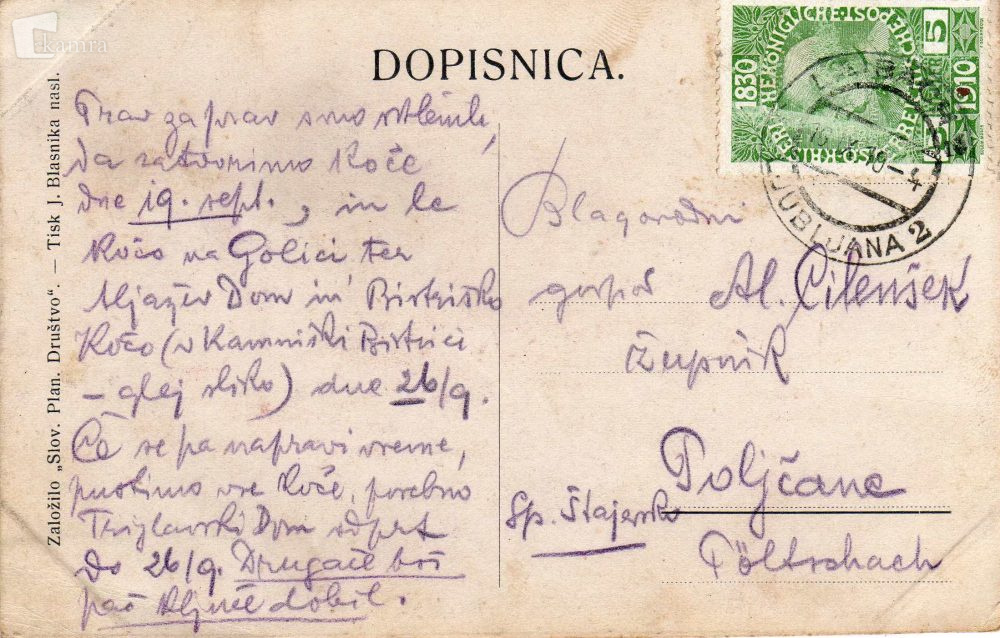 kamra
DOPISNICA.
Založilo „Slov. Plan. Društvo“. — Tisk J. Blasnika nasl.
1830
1910
5
5
LJUBLJANA 2
Prav zaprav smo sklenili,
da zatvorimo Koče
dne 19. sept., in le
Kočo na Golici ter
Aljažev Dom in Bistriško
Kočo (v Kamniški Bistrici
– glej sliko) dne 26/9.
Če se pa napravi vreme,
pustimo vse Koče, posebno
Triglavski Dom odprt
do 26/9. Drugače boš
pač ključ dobil.
Blagorodni
gospod Al. Cilenšek
župnik
Poljčane
Sp. Štajersko
Pöltschach